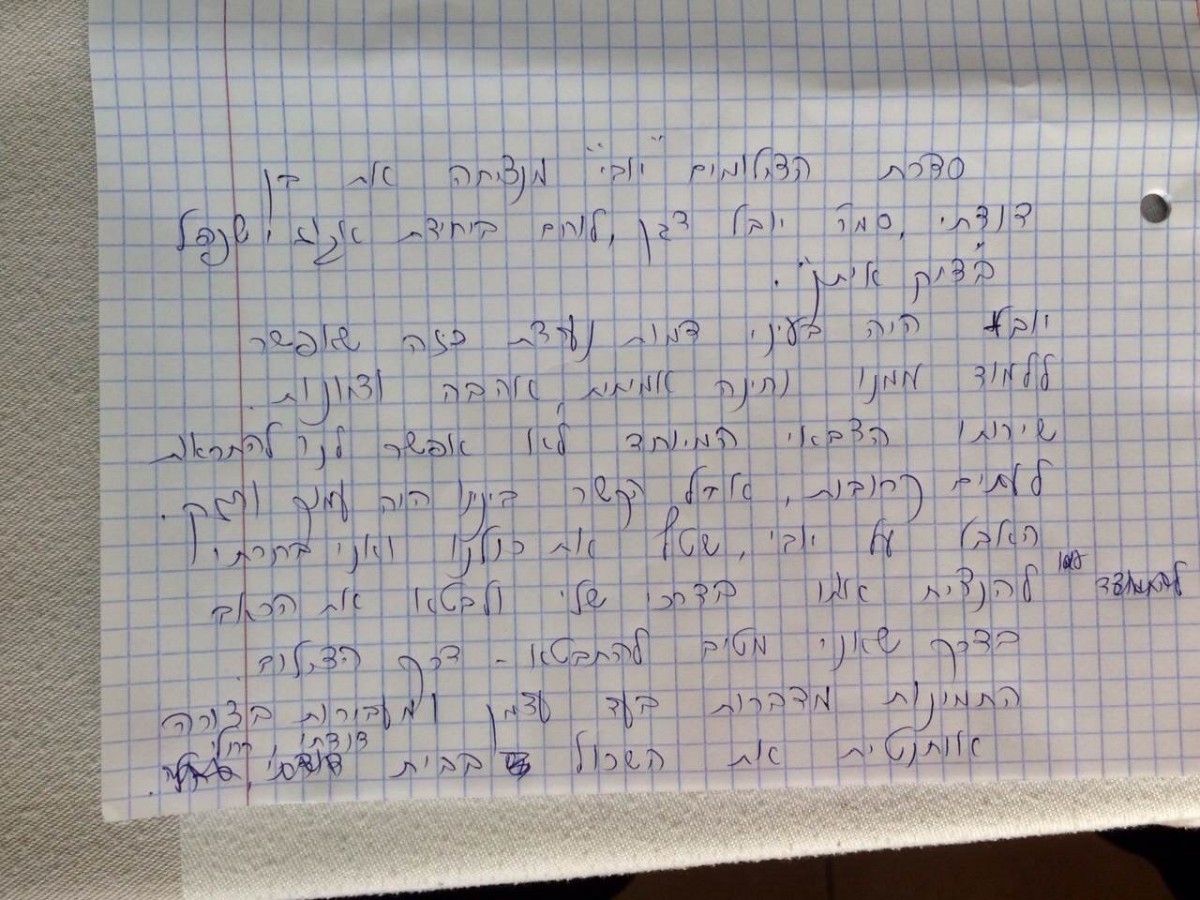 סדרת הצילומים "יובי" מנציחה את בן
דודתי, סמר יובל דגן, לוחם ביחידת אגוז, שנפל
ב"צוק איתן".
יובל היה בעיני דמות נערצת כזה שאפשר
ללמוד ממנו נתינה אמיתית, אהבה וצניעות.
שירותו הצבאי המיוחד לא אפשר לנו להתראות
לעתים קרובות, אבל הקשר בינינו היה עמוק וחזק.
האבל על יובי, שטף את כולנו ואני בחרתי
להנציח אותו בדרכי שלי ולבטא את הכאב
בדרך שאני מטיב להתבטא - דרך הצילום.
התמונות מדברות בעד עצמן ומעבירות בצורה
דודתי
אותנטית את השכול בבית